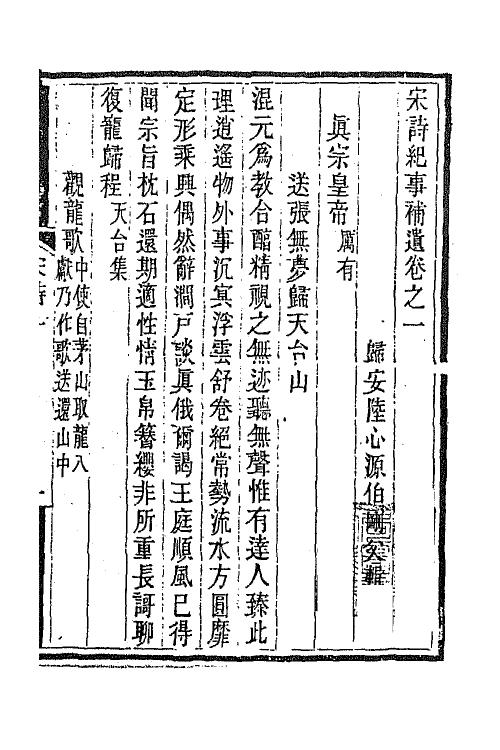 宋詩紀事補遺卷之一
歸安陸心源伯剛父輯
眞宗皇帝 厲有
送張無夢歸天台山
混元爲教含醕精視之無迹聽無聲惟有達人臻此
理逍遙物外事沉㝠浮雲舒卷絕常勢流水方圓靡
定形乘興偶然辭澗戶談眞俄爾謁王庭順風已得
聞宗旨枕石還期適性情玉帛簪纓非所重長謌聊
復龍歸程 天台集
觀龍歌 中使自茅山取龍入
獻乃作歌送還山中